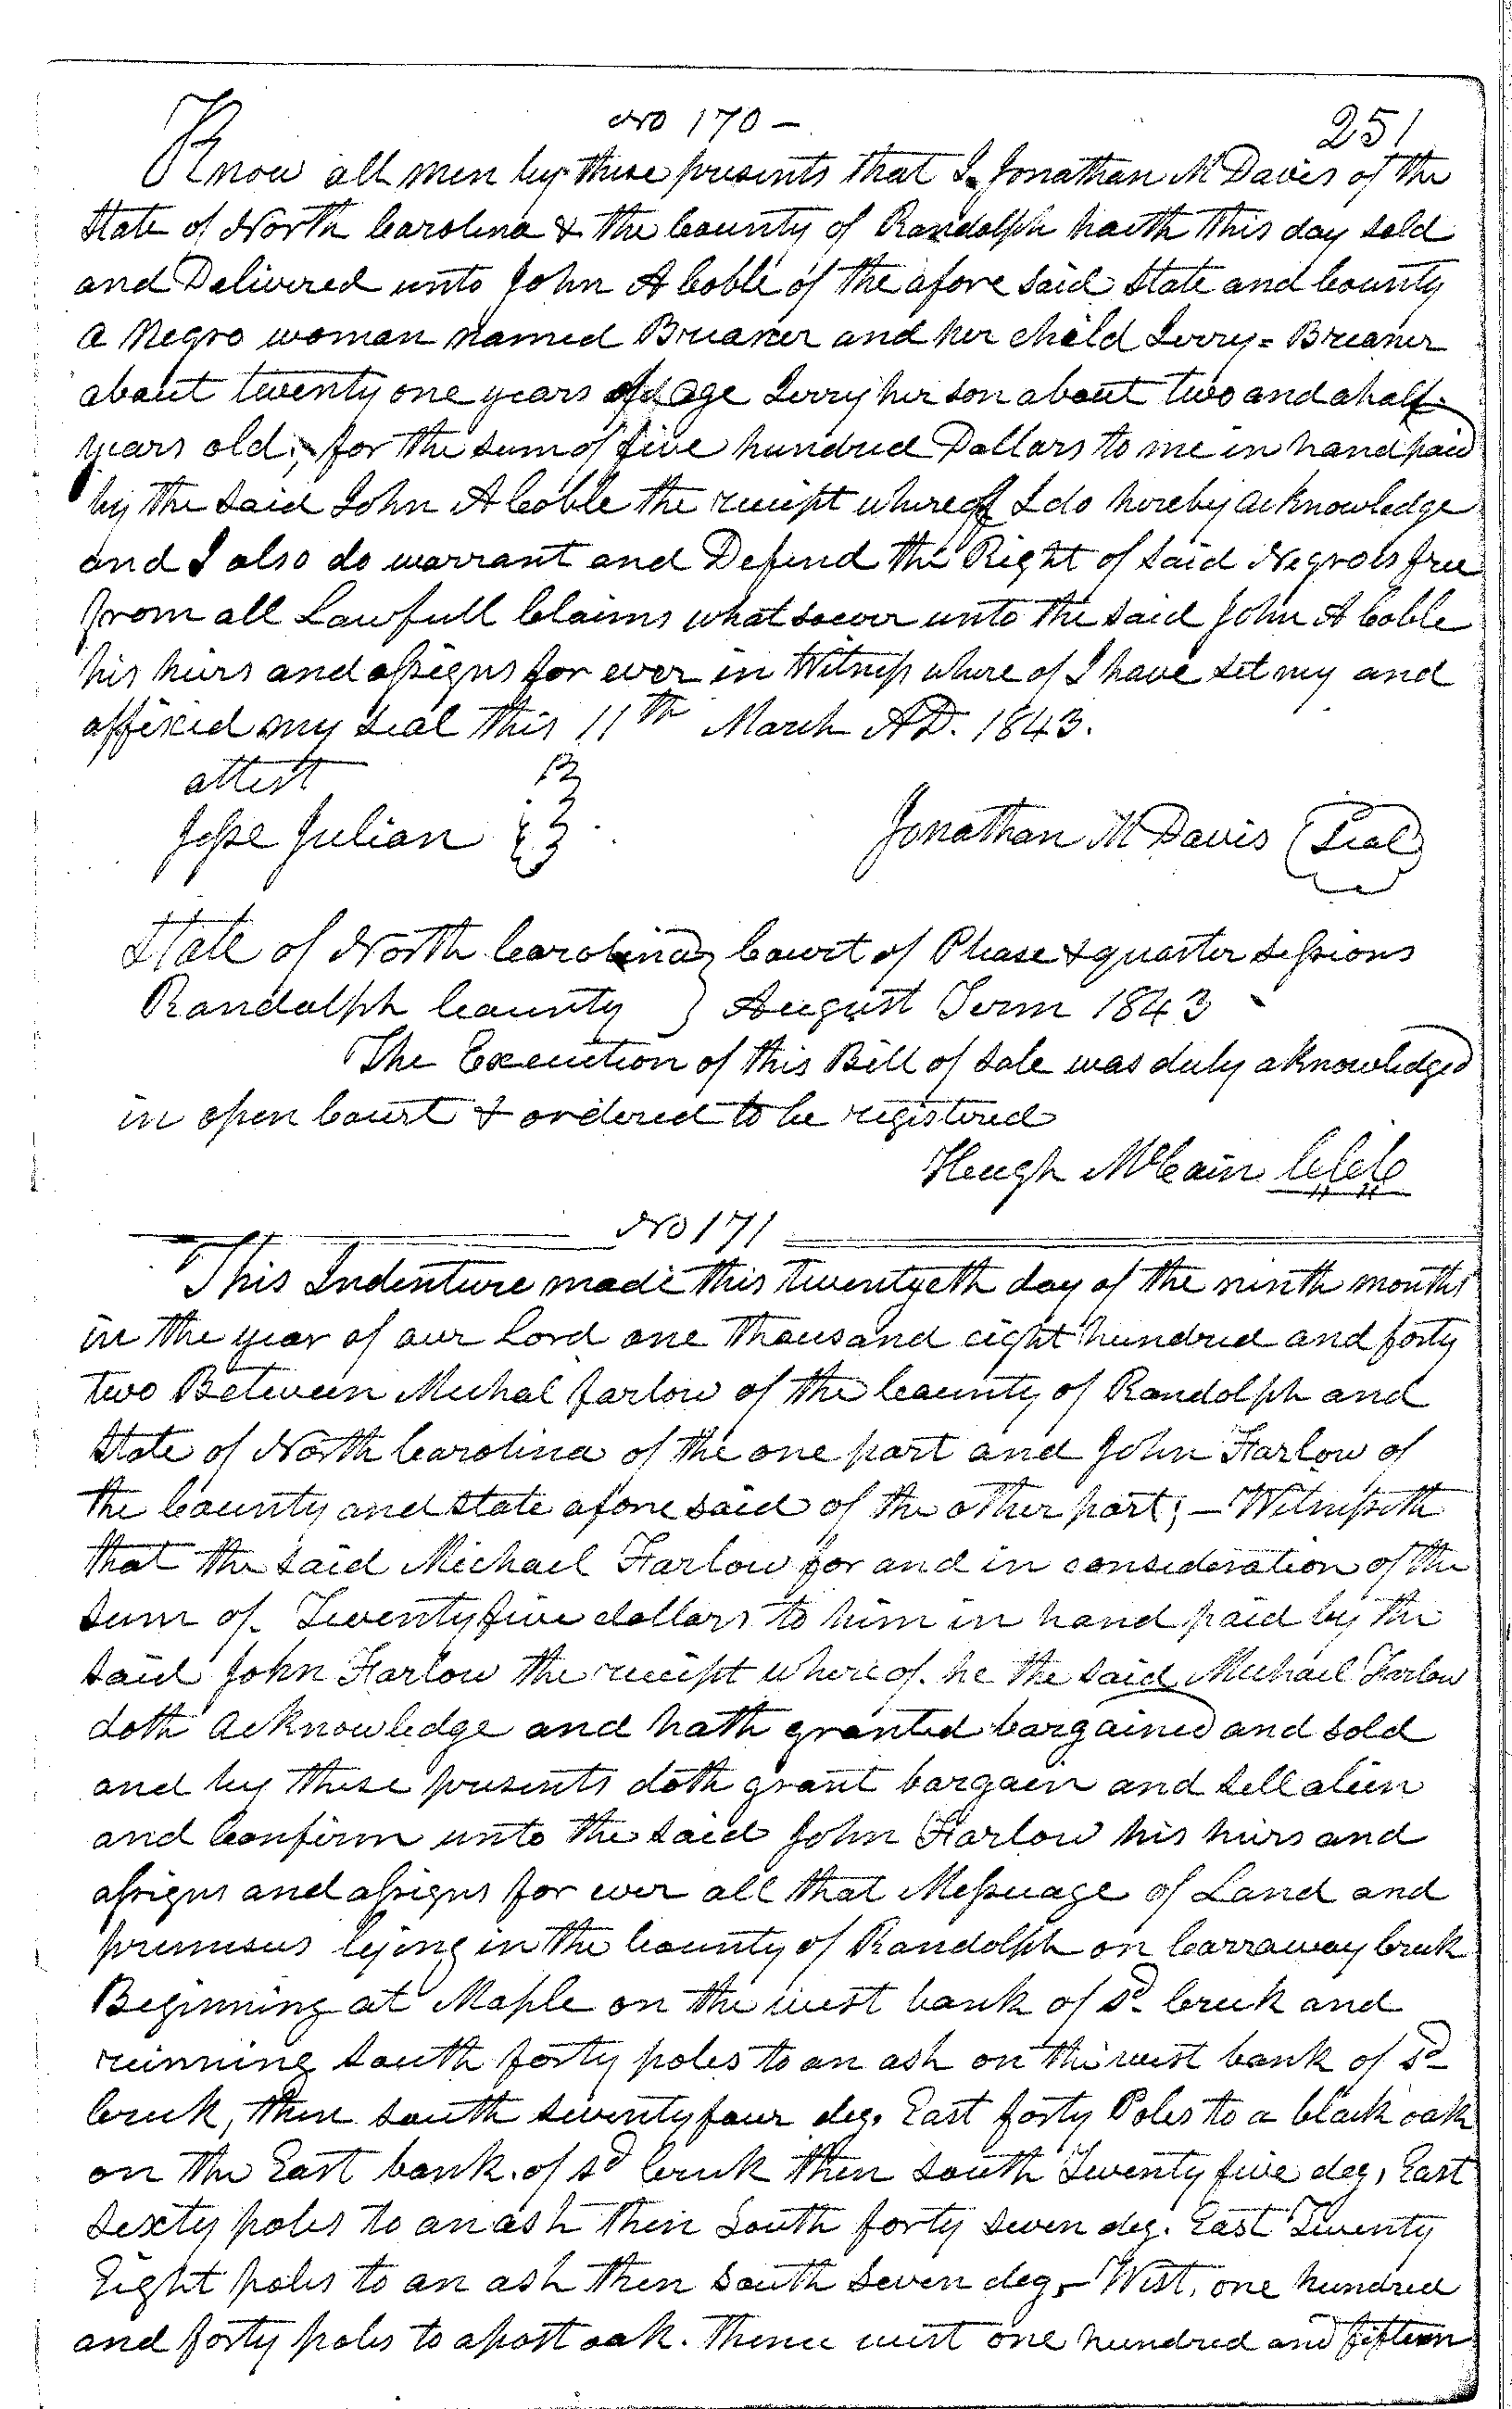 No 170 –
251
Know all men by these presents that I Jonathan M Davis of the
State of North Carolina & the County of Randolph haith this day sold
and Delivered unto John A Coble of the afore said State and County
a Negro woman named Breaner and her child Jerry = Breaner
about twenty one years of age Jerry her son about two and a half
years old, for the sum of five hundred Dollars to me in hand paid
by the said John A Coble the receipt whereof I do hereby acknowledge
and I also do warrant and Defend the Right of said Negroes free
from all Lawfull Claims what soever unto the said John A Coble
his heirs and assigns for ever in Witness where of I have set my and
affixed my seal this 11th March A.D. 1843.
attest
Jesse Julian
Jonathan M Davis (Seal)
State of North Carolina } Court of Please & quarter sessions
Randolph County } August Term 1843
The Execution of this Bill of sale was duly aknowledged
in open Court & ordered to be registered
Hugh McCain CCC
No 171
This Indenture made this twentyeth day of the ninth month
in the year of our Lord one thousand eight hundred and forty
two Between Michal Farlow of the County of Randolph and
State of North Carolina of the one part and John Farlow of
the County and State afore said of the other part; – Witnesseth
that the said Michael Farlow for and in consideration of the
sum of Twenty five dollars to him in hand paid by the
said John Farlow the receipt where of he the said Michael Farlow
doth acknowledge and hath granted bargained and sold
and by these presents doth grant bargain and sell alien
and Confirm unto the said John Farlow his heirs and
assigns and assigns for ever all that Messuage of Land and
premises lying in the County of Randolph on Carraway Creek
Beginning at Maple on the west bank of sd Creek and
running south forty poles to an ash on the west bank of sd
Creek, then south seventy four deg. East forty Poles to a black oak
on the East bank of sd Creek then south Twenty five deg, East
sixty poles to an ash then South forty seven deg. East Twenty
Eight poles to an ash then South Seven deg. West, one hundred
and forty poles to a post oak. Thence west one hundred and fifteen